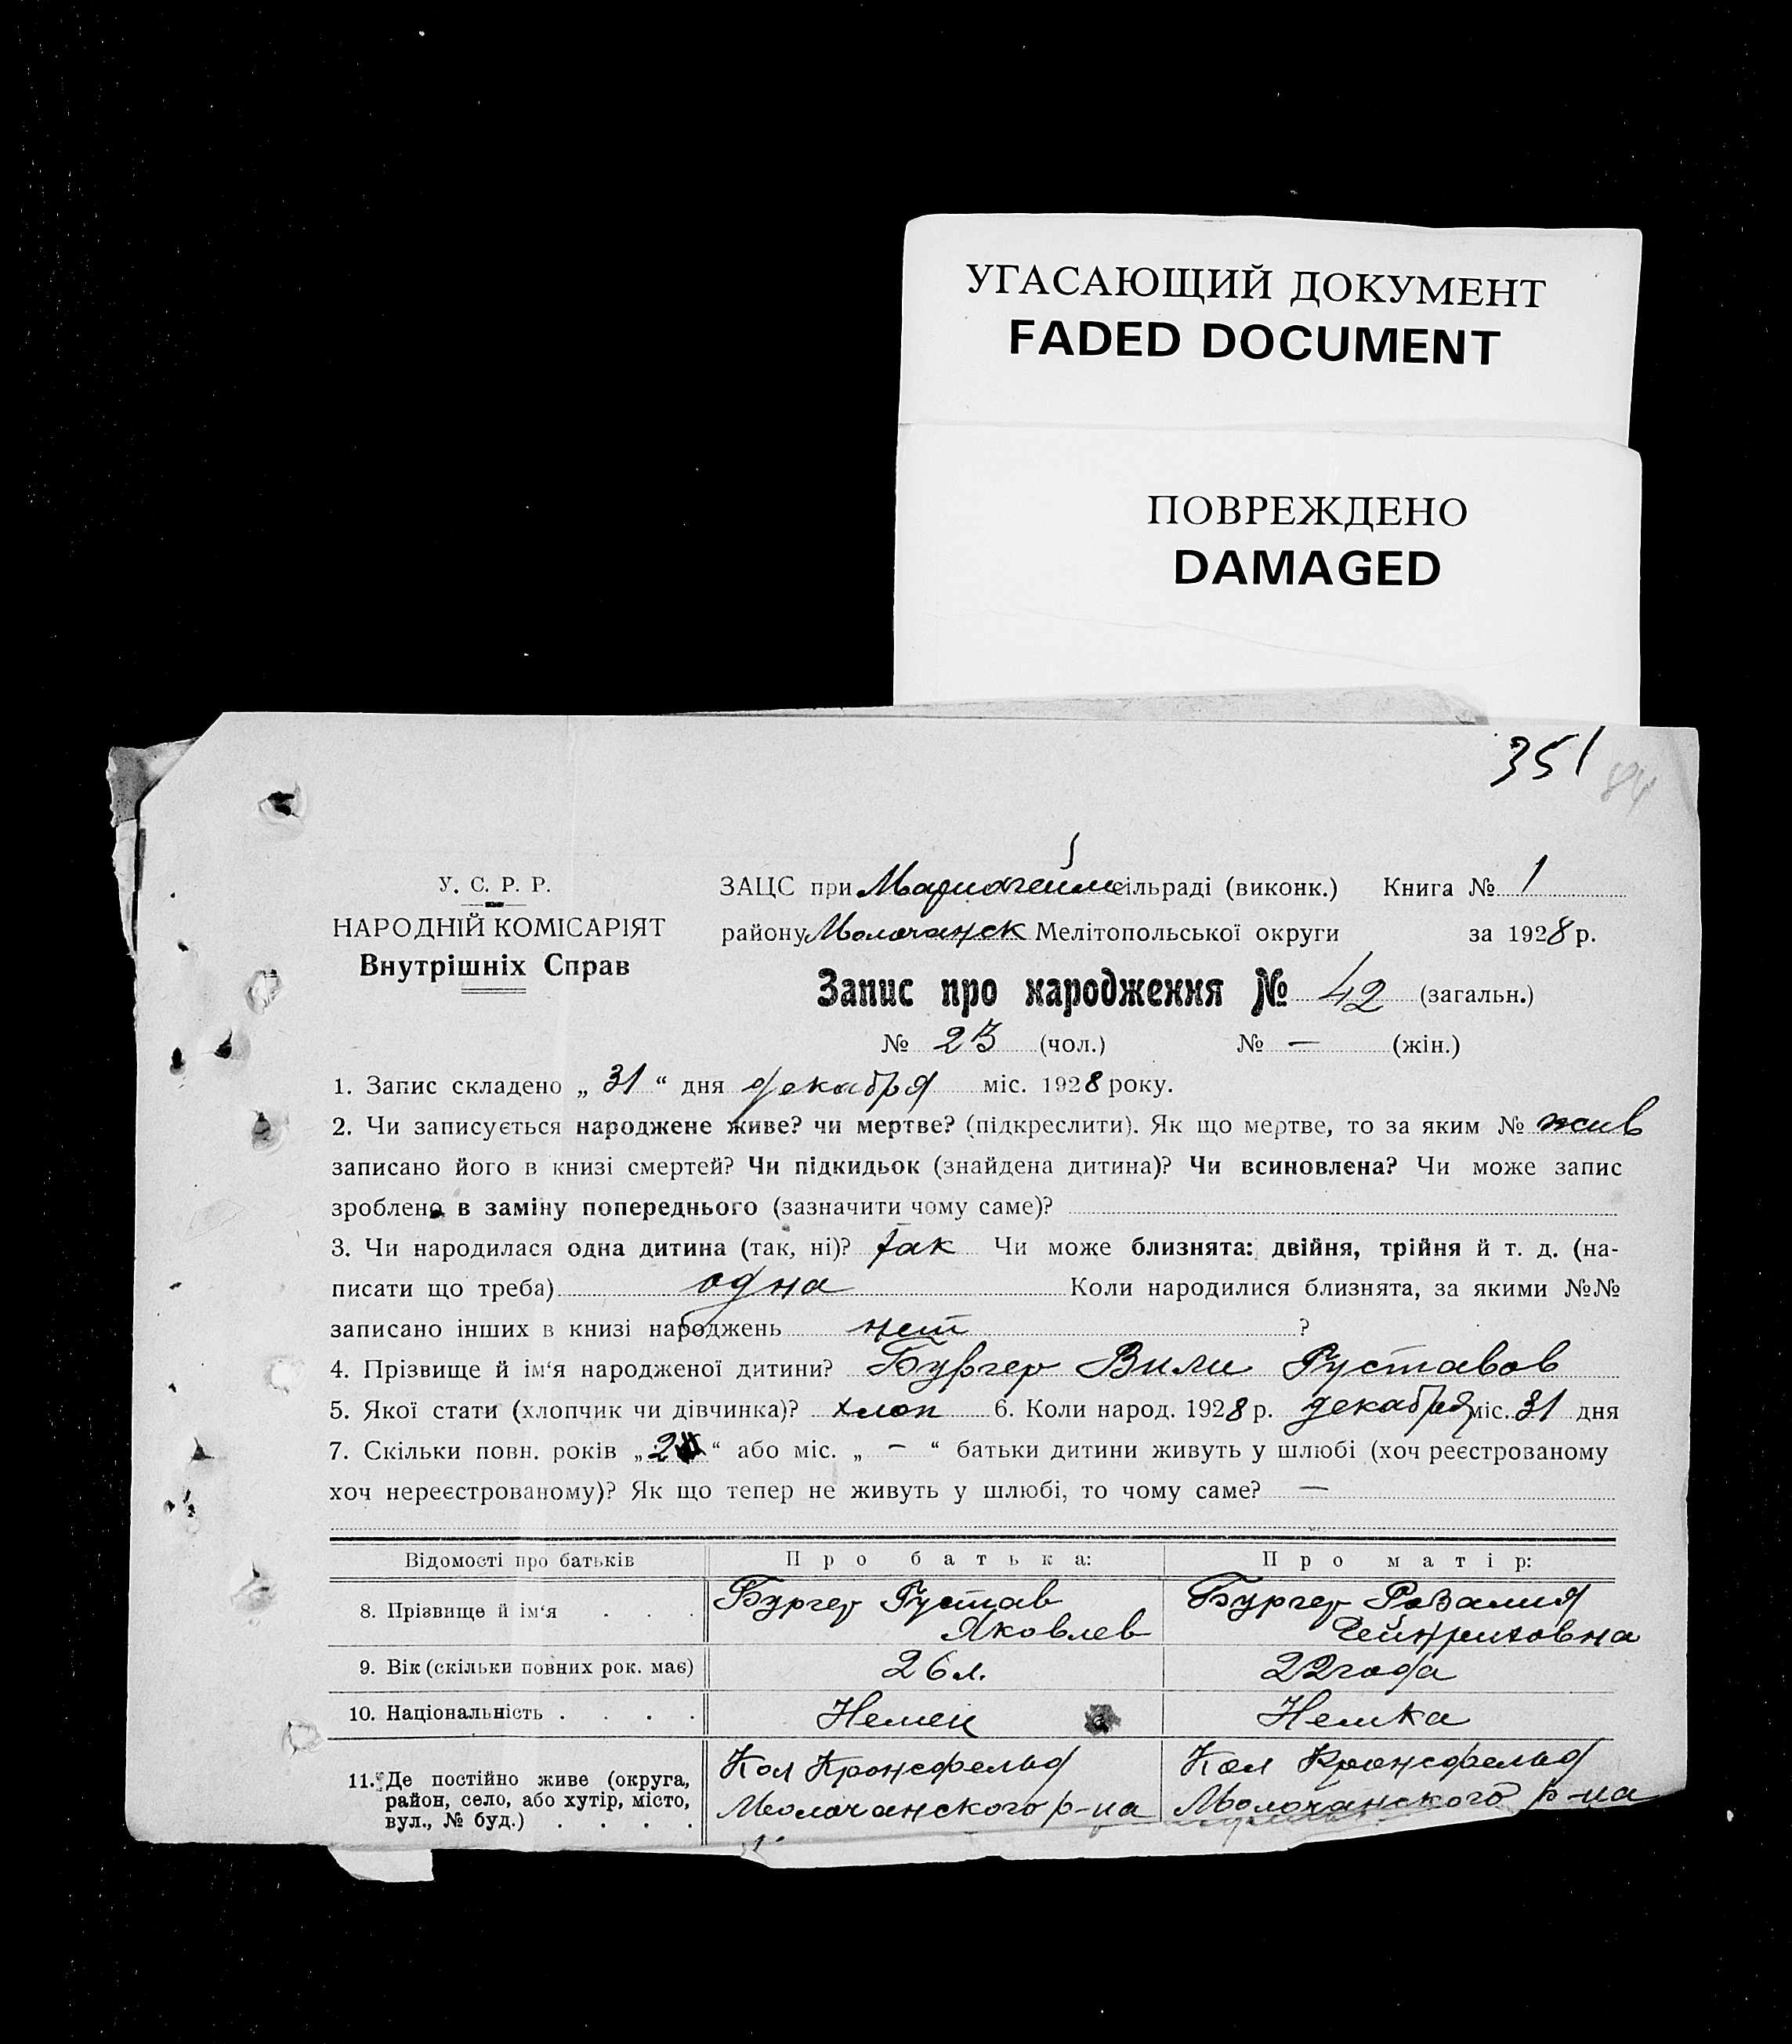 УГАСАЮЩИЙ ДОКУМЕНТ
FADED DOCUMENT
ПОВРЕЖДЕНО
DAMAGED
351
84
У. С. Р. Р.
НАРОДНІЙ КОМІСАРІЯТ
Внутрішніх Справ
ЗАЦС при Мариагейм сільраді (виконк.) Книга № 1
району Молочанск Мелітопольської округи за 1928 р.
Запис про народження № 42 (загальн.)
№ 23 (чол.) № — (жін.)
1. Запис складено „ 31 “ дня декабря міс. 1928 року.
2. Чи записується народжене живе? чи мертве? (підкреслити). Як що мертве, то за яким № жив
записано його в книзі смертей? Чи підкидьок (знайдена дитина)? Чи всиновлена? Чи може запис
зроблено в заміну попереднього (зазначити чому саме)?
3. Чи народилася одна дитина (так, ні)? так Чи може близнята: двійня, трійня й т. д. (на-
писати що треба) одна Коли народилися близнята, за якими №№
записано інших в книзі народжень нет ?
4. Прізвище й ім‘я народженої дитини? Бургер Вили Густавов
5. Якої стати (хлопчик чи дівчинка)? хлоп 6. Коли народ. 1928 р. декабря міс. 31 дня
7. Скільки повн. років „ 2 “ або міс. „ — “ батьки дитини живуть у шлюбі (хоч реєстрованому
хоч нереєстрованому)? Як що тепер не живуть у шлюбі, то чому саме? —
Відомості про батьків Про батька: Про матір:
8. Прізвище й ім‘я . . . Бургер Густав Яковлев Бургер Розалия Гейнриховна
9. Вік (скільки повних рок. має) 26 л. 22 года
10. Національність . . . . Немец Немка
11. Де постійно живе (округа, район, село, або хутір, місто, вул., № буд.) . . . . Кол Кронсфельд Молочанского р-на Кол Кронсфельд Молочанского р-на